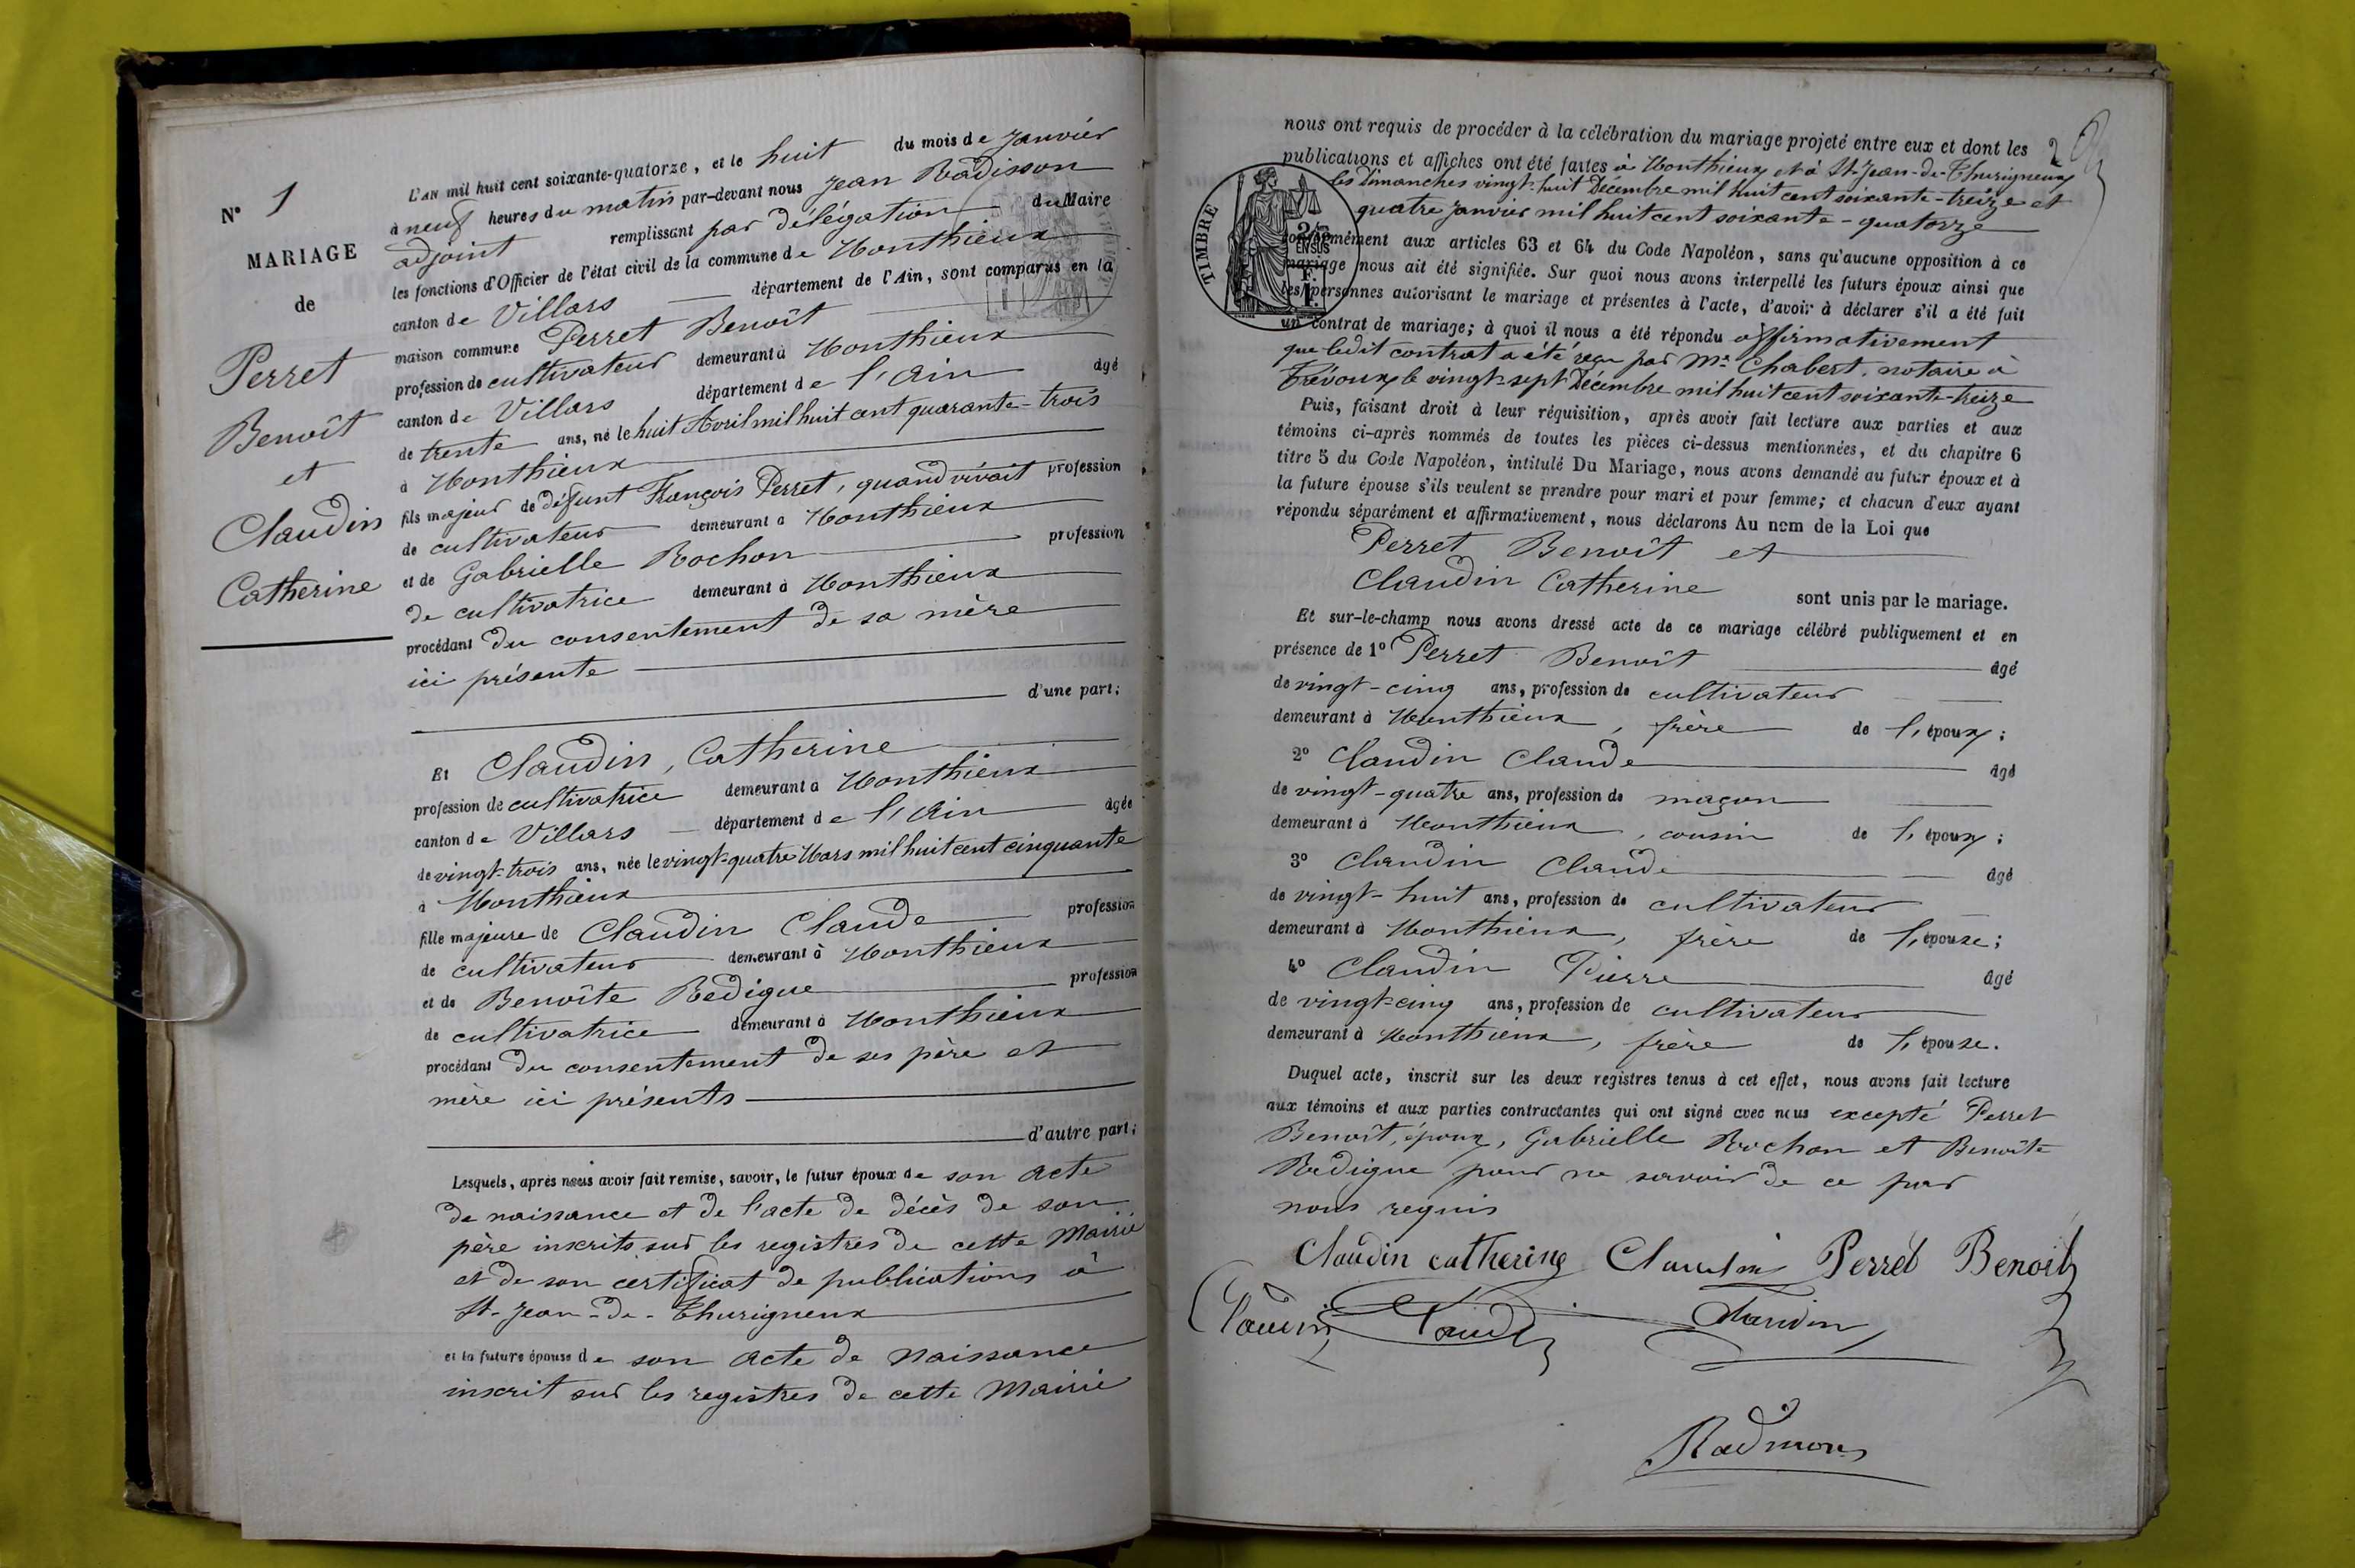 N° 1
MARIAGE
de
Perret
Benoît
et
Claudin
Catherine
L'AN mil huit cent soixante-quatorze, et le huit du mois de Janvier
à neuf heures du matin par-devant nous Jean Radisson
adjoint remplissant par délégation du Maire
les fonctions d'Officier de l'état civil de la commune de Monthieux
canton de Villars département de l'Ain, sont comparus en la
maison commune Perret Benoît
profession de cultivateur demeurant à Monthieux
canton de Villars département de l'Ain âgé
de trente ans, né le huit Avril mil huit cent quarante-trois
à Monthieux
fils majeur de défunt François Perret, quand vivait profession
de cultivateur demeurant à Monthieux
et de Gabrielle Rochon profession
de cultivatrice demeurant à Monthieux
procédant du consentement de sa mère
ici présente
d'une part;
Et Claudin, Catherine
profession de cultivatrice demeurant à Monthieux
canton de Villars département de l'Ain âgée
de vingt-trois ans, née le vingt-quatre Mars mil huit cent cinquante
à Monthieux
fille majeure de Claudin Claude profession
de cultivateur demeurant à Monthieux
et de Benoîte Bedigue profession
de cultivatrice demeurant à Monthieux
procédant du consentement de ses père et
mère ici présents
d'autre part;
Lesquels, après nous avoir fait remise, savoir, le futur époux de son acte
de naissance et de l'acte de décès de son
père inscrits sur les registres de cette Mairie
et de son certificat de publications à
St-Jean-de-Thurigneux
et la future épouse de son acte de naissance
inscrit sur les registres de cette Mairie
2
nous ont requis de procéder à la célébration du mariage projeté entre eux et dont les
publications et affiches ont été faites à Monthieux et à St-Jean-de-Thurigneux
les dimanches vingt-huit Décembre mil huit cent soixante-treize et
quatre Janvier mil huit cent soixante-quatorze
TIMBRE
2/10
EN SUS
F.
1.
conformément aux articles 63 et 64 du Code Napoléon, sans qu'aucune opposition à ce
mariage nous ait été signifiée. Sur quoi nous avons interpellé les futurs époux ainsi que
les personnes autorisant le mariage et présentes à l'acte, d'avoir à déclarer s'il a été fait
un contrat de mariage; à quoi il nous a été répondu affirmativement
que ledit contrat a été reçu par Me Chabert, notaire à
Trévoux le vingt-sept Décembre mil huit cent soixante-treize
Puis, faisant droit à leur réquisition, après avoir fait lecture aux parties et aux
témoins ci-après nommés de toutes les pièces ci-dessus mentionnées, et du chapitre 6
titre 5 du Code Napoléon, intitulé Du Mariage, nous avons demandé au futur époux et à
la future épouse s'ils veulent se prendre pour mari et pour femme; et chacun d'eux ayant
répondu séparément et affirmativement, nous déclarons Au nom de la Loi que
Perret Benoît et
Claudin Catherine
sont unis par le mariage.
Et sur-le-champ nous avons dressé acte de ce mariage célébré publiquement et en
présence de 1° Perret Benoît âgé
de vingt-cinq ans, profession de cultivateur
demeurant à Monthieux, frère de l'époux;
2° Claudin Claude âgé
de vingt-quatre ans, profession de maçon
demeurant à Monthieux, cousin de l'époux;
3° Claudin Claude âgé
de vingt-huit ans, profession de cultivateur
demeurant à Monthieux, frère de l'épouse;
4° Claudin Pierre âgé
de vingt-cinq ans, profession de cultivateur
demeurant à Monthieux, frère de l'épouse.
Duquel acte, inscrit sur les deux registres tenus à cet effet, nous avons fait lecture
aux témoins et aux parties contractantes qui ont signé avec nous excepté Perret
Benoît, époux, Gabrielle Rochon et Benoîte
Bedigue pour ne savoir de ce par
nous requis
Claudin catherine Claudin Perret Benoit
Claudin Claudin
Radisson